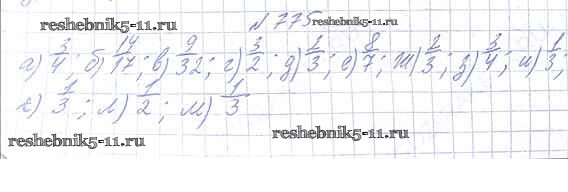 reshebnik5-11.ru
№ 775 reshebnik5-11.ru
а) 3/4; б) 14/17; в) 9/32; г) 3/2; д) 1/3; е) 8/7; ж) 2/3; з) 3/4; и) 1/3;
к) 1/3; л) 1/2; м) 1/3
reshebnik5-11.ru reshebnik5-11.ru